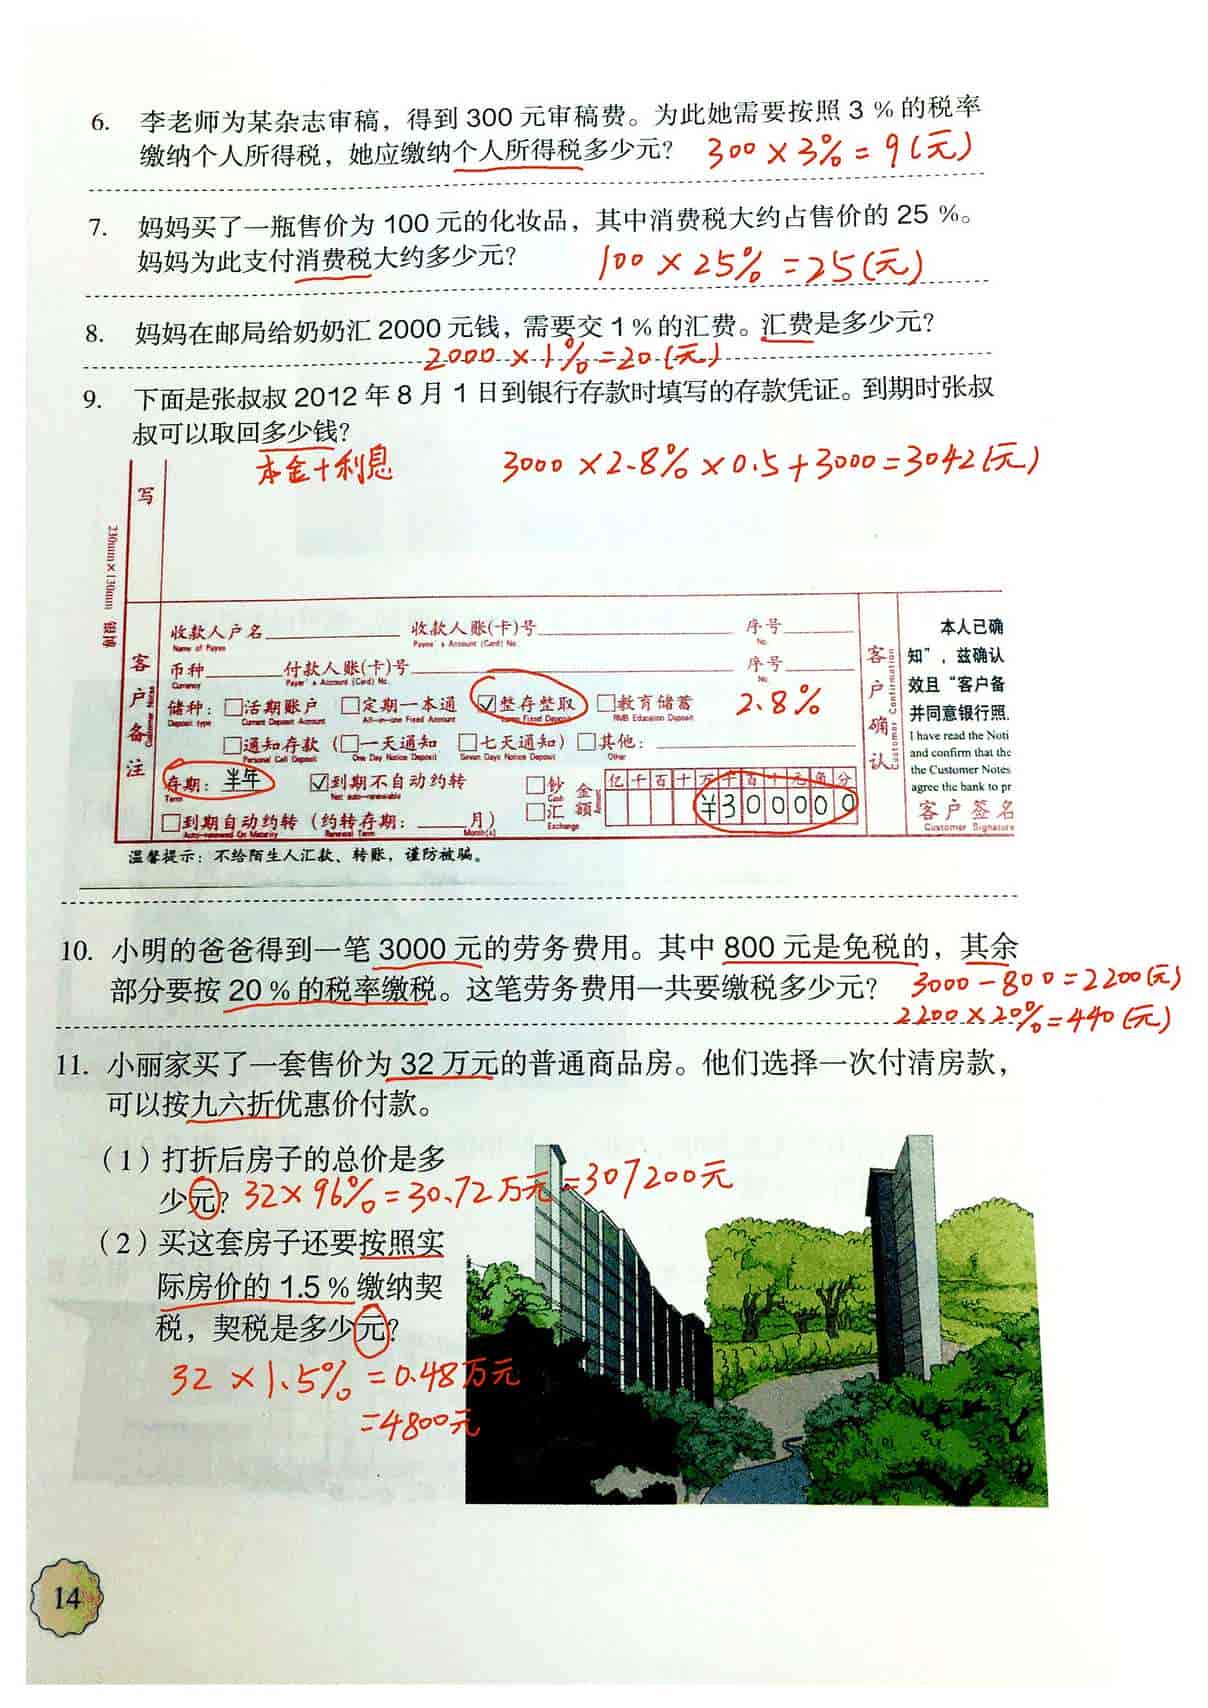 6. 李老师为某杂志审稿，得到 300 元审稿费。为此她需要按照 3 % 的税率
缴纳个人所得税，她应缴纳个人所得税多少元？ 300×3%=9(元)
7. 妈妈买了一瓶售价为 100 元的化妆品，其中消费税大约占售价的 25 %。
妈妈为此支付消费税大约多少元？ 100×25%=25(元)
8. 妈妈在邮局给奶奶汇 2000 元钱，需要交 1 % 的汇费。汇费是多少元？
2000×1%=20(元)
9. 下面是张叔叔 2012 年 8 月 1 日到银行存款时填写的存款凭证。到期时张叔
叔可以取回多少钱？
本金+利息 3000×2.8%×0.5+3000=3042(元)
写
230mm×130mm
客户备注
Customer Notes
收款人户名 收款人账(卡)号 序号
Name of Payee Payee's Account (Card) No. No.
币种 付款人账(卡)号 序号
Currency Payer's Account (Card) No. No.
储种： 活期账户 定期一本通 ✓整存整取 教育储蓄 2.8%
Deposit type Current Deposit Account All-in-one Fixed Account Fixed Deposit RMB Education Deposit
通知存款 (一天通知 七天通知) 其他：
Personal Call Deposit One Day Notice Deposit Seven Days Notice Deposit Other
存期：半年 ✓到期不自动约转 钞 金额 亿千百十万千百十元角分
Term Not auto-renewable Cash Amount
汇 ¥300000
Exchange
到期自动约转 (约转存期： 月)
Auto-renewed On Maturity Renewal Term Month(s)
客户确认
Customer Confirmation
本人已确
知”，兹确认
效且“客户备
并同意银行照.
I have read the Noti
and confirm that the
the Customer Notes
agree the bank to pr
客户签名
Customer Signature
温馨提示：不给陌生人汇款、转账，谨防被骗。
10. 小明的爸爸得到一笔 3000 元的劳务费用。其中 800 元是免税的，其余
部分要按 20 % 的税率缴税。这笔劳务费用一共要缴税多少元？ 3000-800=2200(元)
2200×20%=440(元)
11. 小丽家买了一套售价为 32 万元的普通商品房。他们选择一次付清房款，
可以按九六折优惠价付款。
(1) 打折后房子的总价是多
少元？ 32×96%=30.72万元=307200元
(2) 买这套房子还要按照实
际房价的 1.5 % 缴纳契
税，契税是多少元？
32×1.5%=0.48万元
=4800元
14